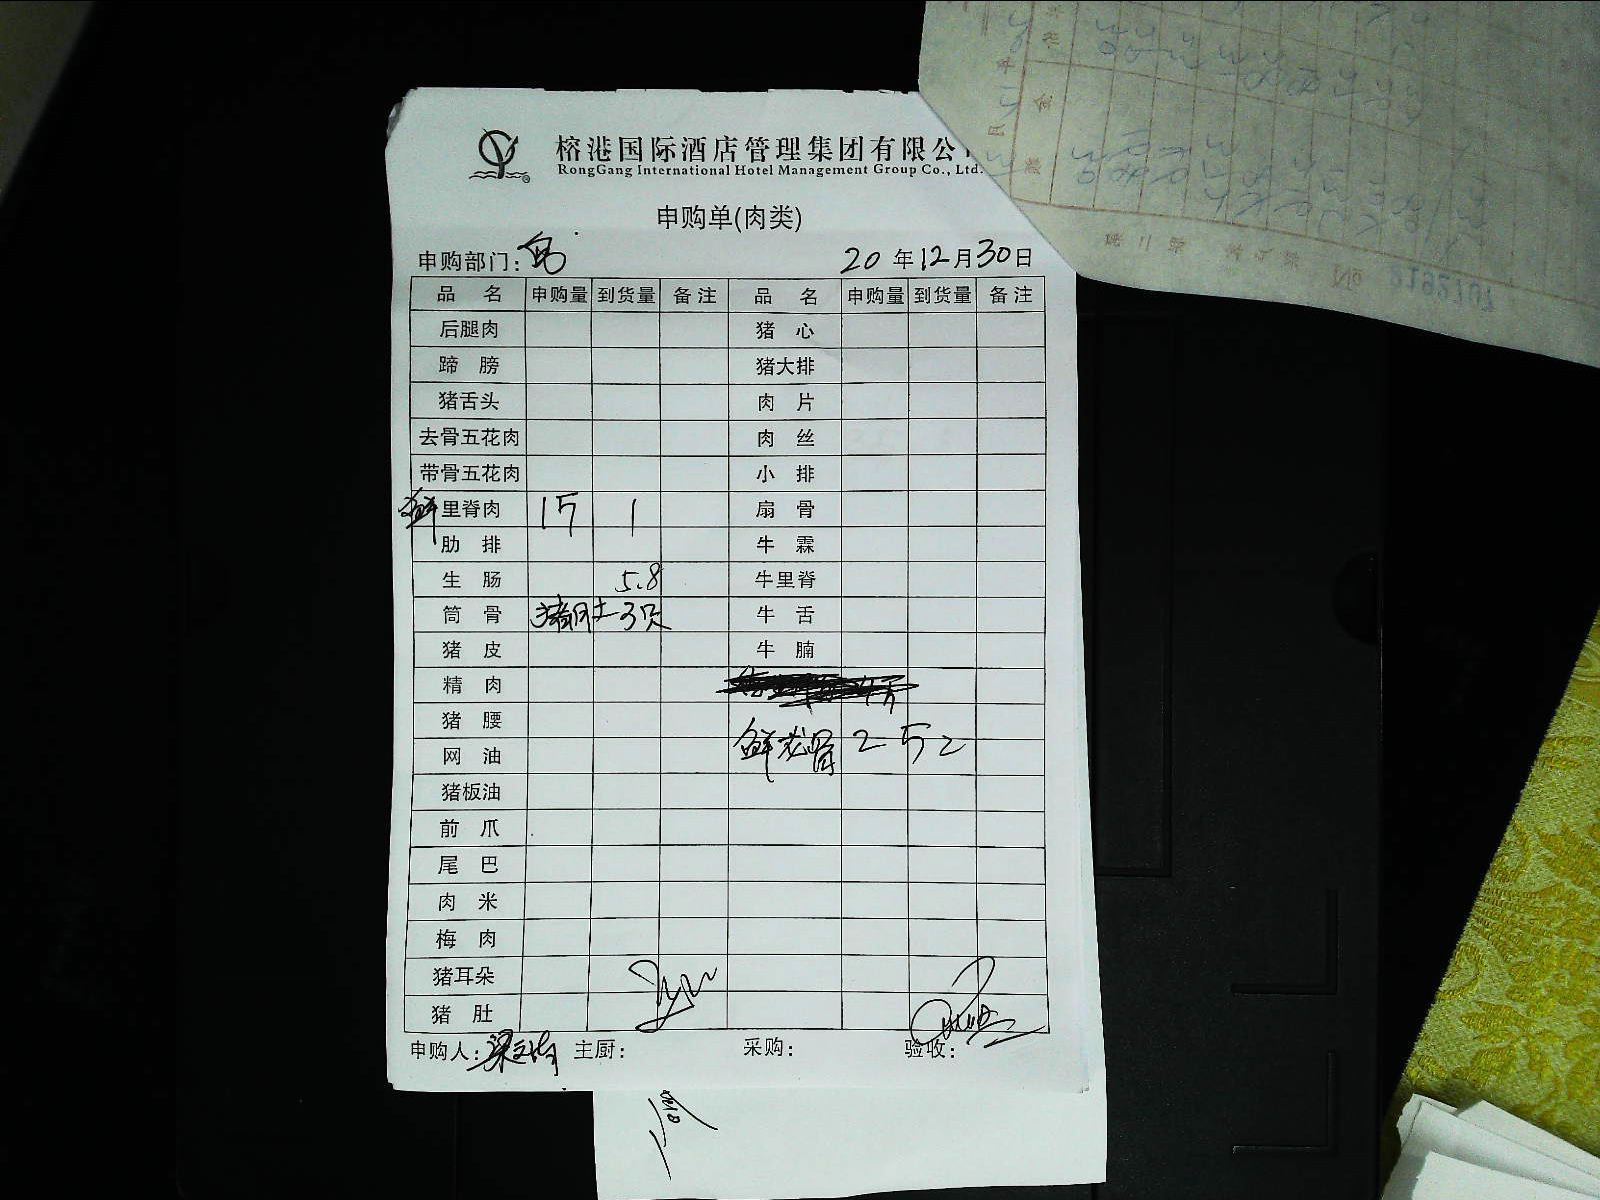 榕港国际酒店管理集团有限公
RongGang International Hotel Management Group Co., Ltd.
申购单(肉类)
申购部门: 20 年 12 月 30 日
品 名 申购量 到货量 备注 品 名 申购量 到货量 备注
后腿肉 猪 心
蹄 膀 猪大排
猪舌头 肉 片
去骨五花肉 肉 丝
带骨五花肉 小 排
鲜里脊肉 1斤 1 扇 骨
肋 排 牛 霖
生 肠 5.8 牛里脊
筒 骨 猪肚 3只 牛 舌
猪 皮 牛 腩
精 肉
猪 腰
网 油 鲜龙骨 2 斤 2
猪板油
前 爪
尾 巴
肉 米
梅 肉
猪耳朵
猪 肚
申购人: 主厨: 采购: 验收: